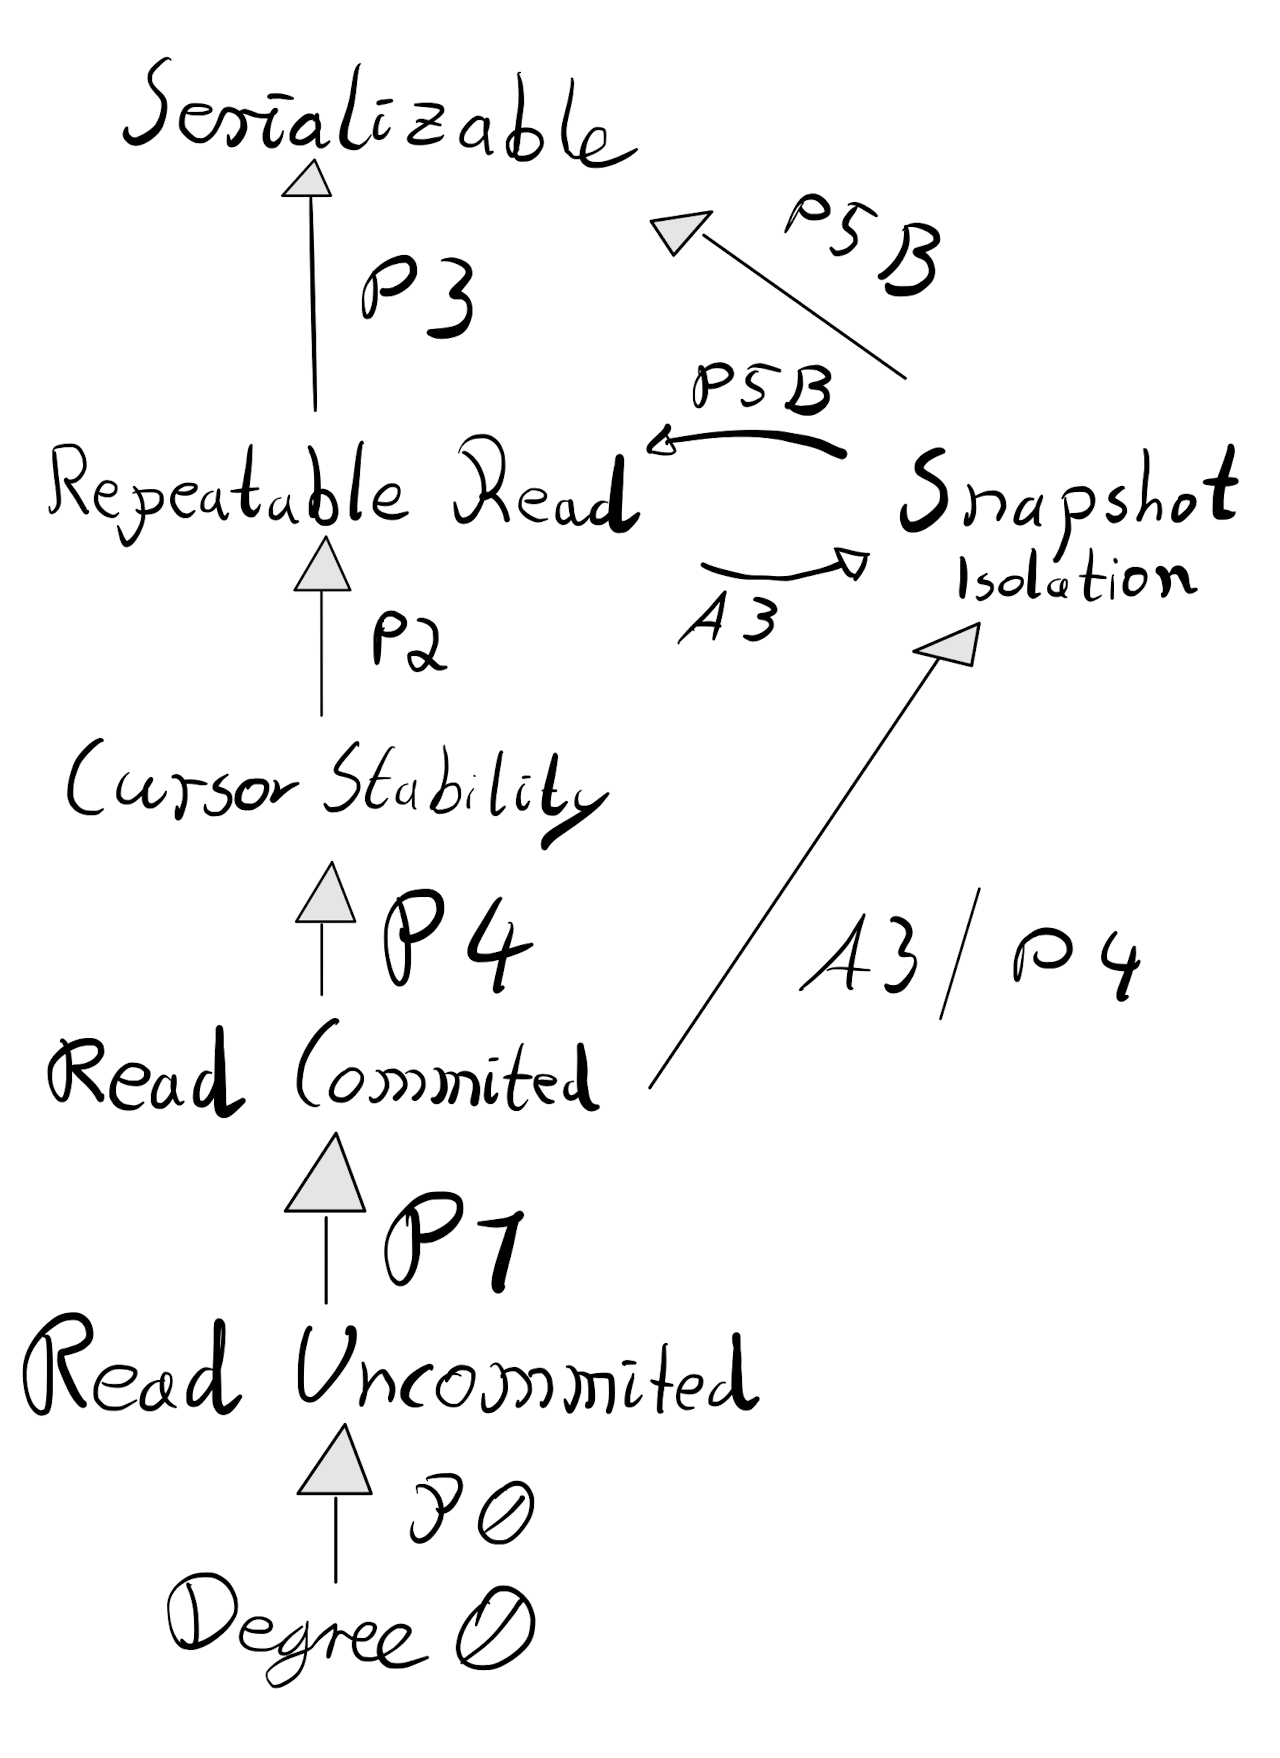 Serializable
P5B
P3
P5B
Repeatable Read
Snapshot
Isolation
A3
P2
Cursor Stability
P4
A3/P4
Read Commited
P1
Read Uncommited
P0
Degree 0